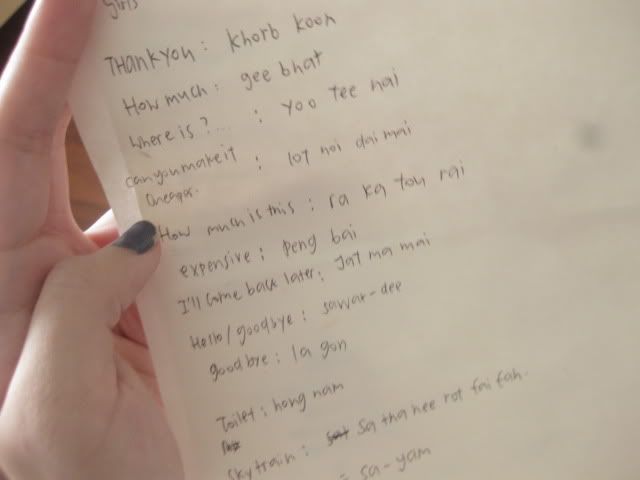 girls
THANKYOU: khorb koon
How much: gee bhat
Where is?...: yoo Tee nai
can you make it : lot noi dai mai
How much is this: ra ka tou rai
expensive: peng bai
I'll come back later: Jat ma mai
Hello/goodbye: sawat-dee
goodbye: la gon
Toilet: hong nam
Skytrain: sa tha nee rot fai fah.
= sa-yam